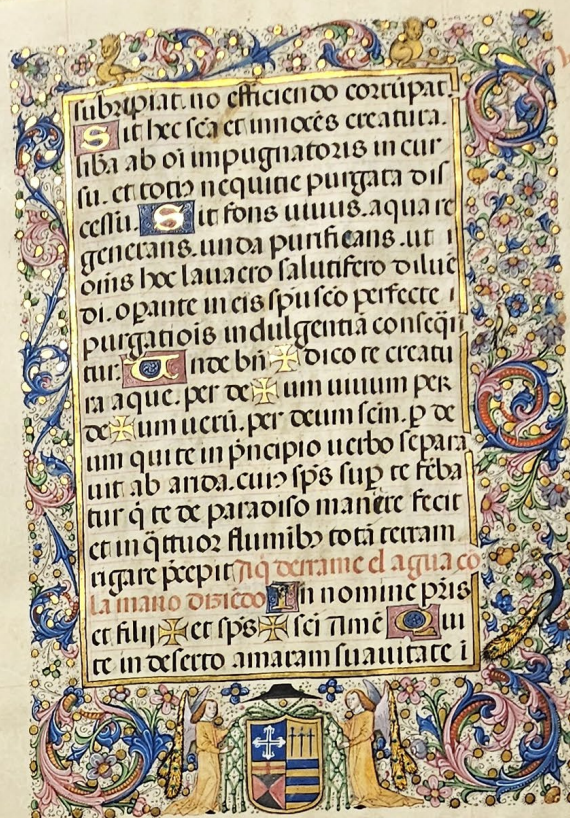 subripiat. no efficiendo corrũpat.
Sit hec scã et innocẽs creatura.
liba ab oĩ impugnatoris in cur
su. et totiꝰ nequitie purgata dis
cessu. Sit fons uiuus. aqua re
generans. unda purificans. ut
oms hoc lauacro salutifero dilue
di. opante in eis spũ scõ perfecte
purgatiois indulgentiã conseqũ
tur. Unde bñ ✠ dico te creatu
ra aque. per de ✠ um uiuum per
de ✠ um uerũ. per deum scm. p̱ de
um qui te in p̃ncipio uerbo separa
uit ab arida. cuiꝰ sp̃s sup̱ te feba
tur q̃ te de paradiso manere fecit
et in q̃ttuor fluminibꝰ totã terram
rigare p̃cepit Aq̃ derrame el agua cõ
la mano diziẽdo In nomine p̃ris
et filij ✠ et sp̃s ✠ sci Amẽ Qui
te in deserto amaram suauitate ĩ